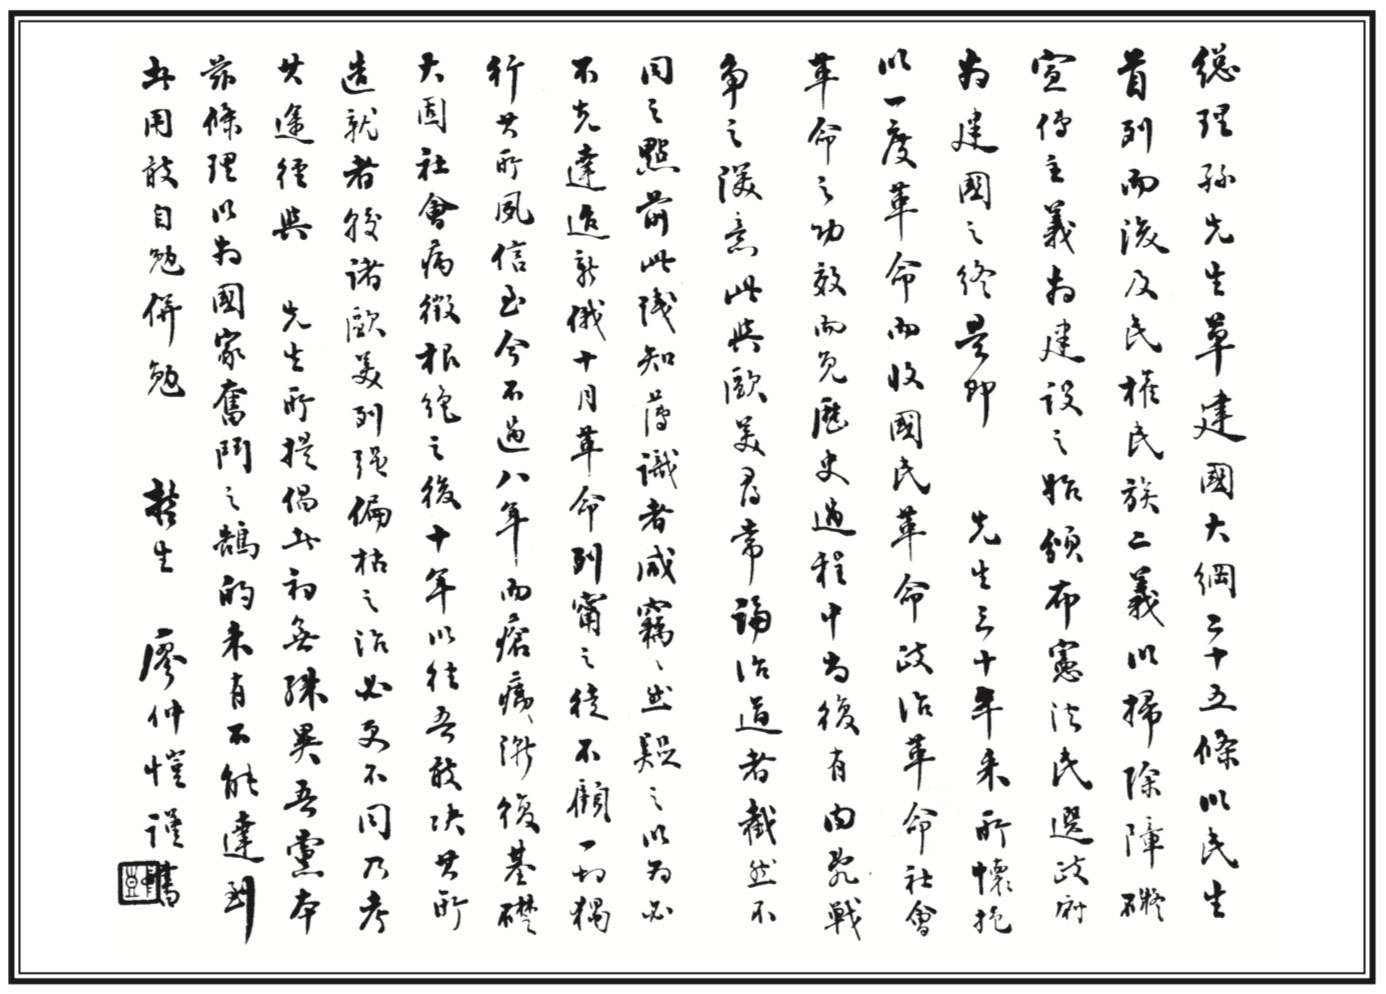 總理孫先生草建國大綱二十五條以民生
首列而後及民權民族二義以掃除障礙
宣傳主義為建設之始頒布憲法民選政府
為建國之終是即 先生三十年來所懷抱
以一度革命而收國民革命政治革命社會
革命之功效而免歷史過程中為復有內亂戰
爭之謬意此與歐美尋常論治道者截然不
同之點前此淺知薄識者咸竊竊然疑之以為必
不先達造新俄十月革命列甯之徒不顧一切獨
行其所夙信至今不過八年而瘡痍漸復基礎
大固社會病徵根絕之後十年以往吾敢決其所
造就者較諸歐美列强偏枯之治必更不同乃考
其途徑與 先生所提倡者初無殊異吾黨本
茲條理以為國家奮鬥之鵠的未有不能達到
者用敢自勉併勉 哲生 廖仲愷謹書